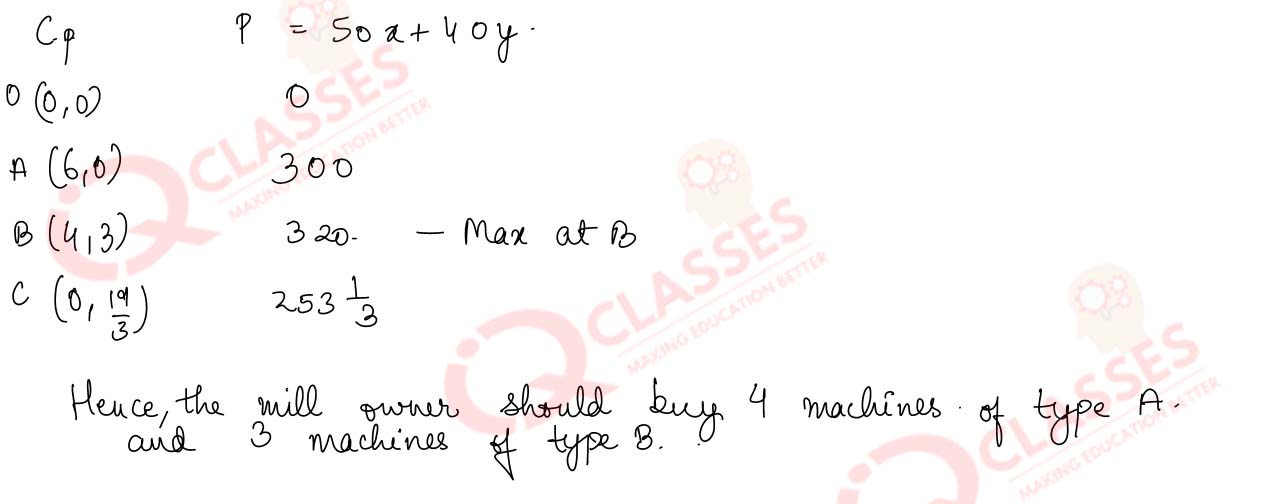 Cp P = 50x + 40y.
O (0,0) 0
A (6,0) 300
B (4,3) 320. — Max at B
C (0, 19/3) 253 1/3
Hence, the mill owner should buy 4 machines of type A.
and 3 machines of type B.
iQ CLASSES
MAKING EDUCATION BETTER
iQ CLASSES
MAKING EDUCATION BETTER
iQ CLASSES
MAKING EDUCATION BETTER